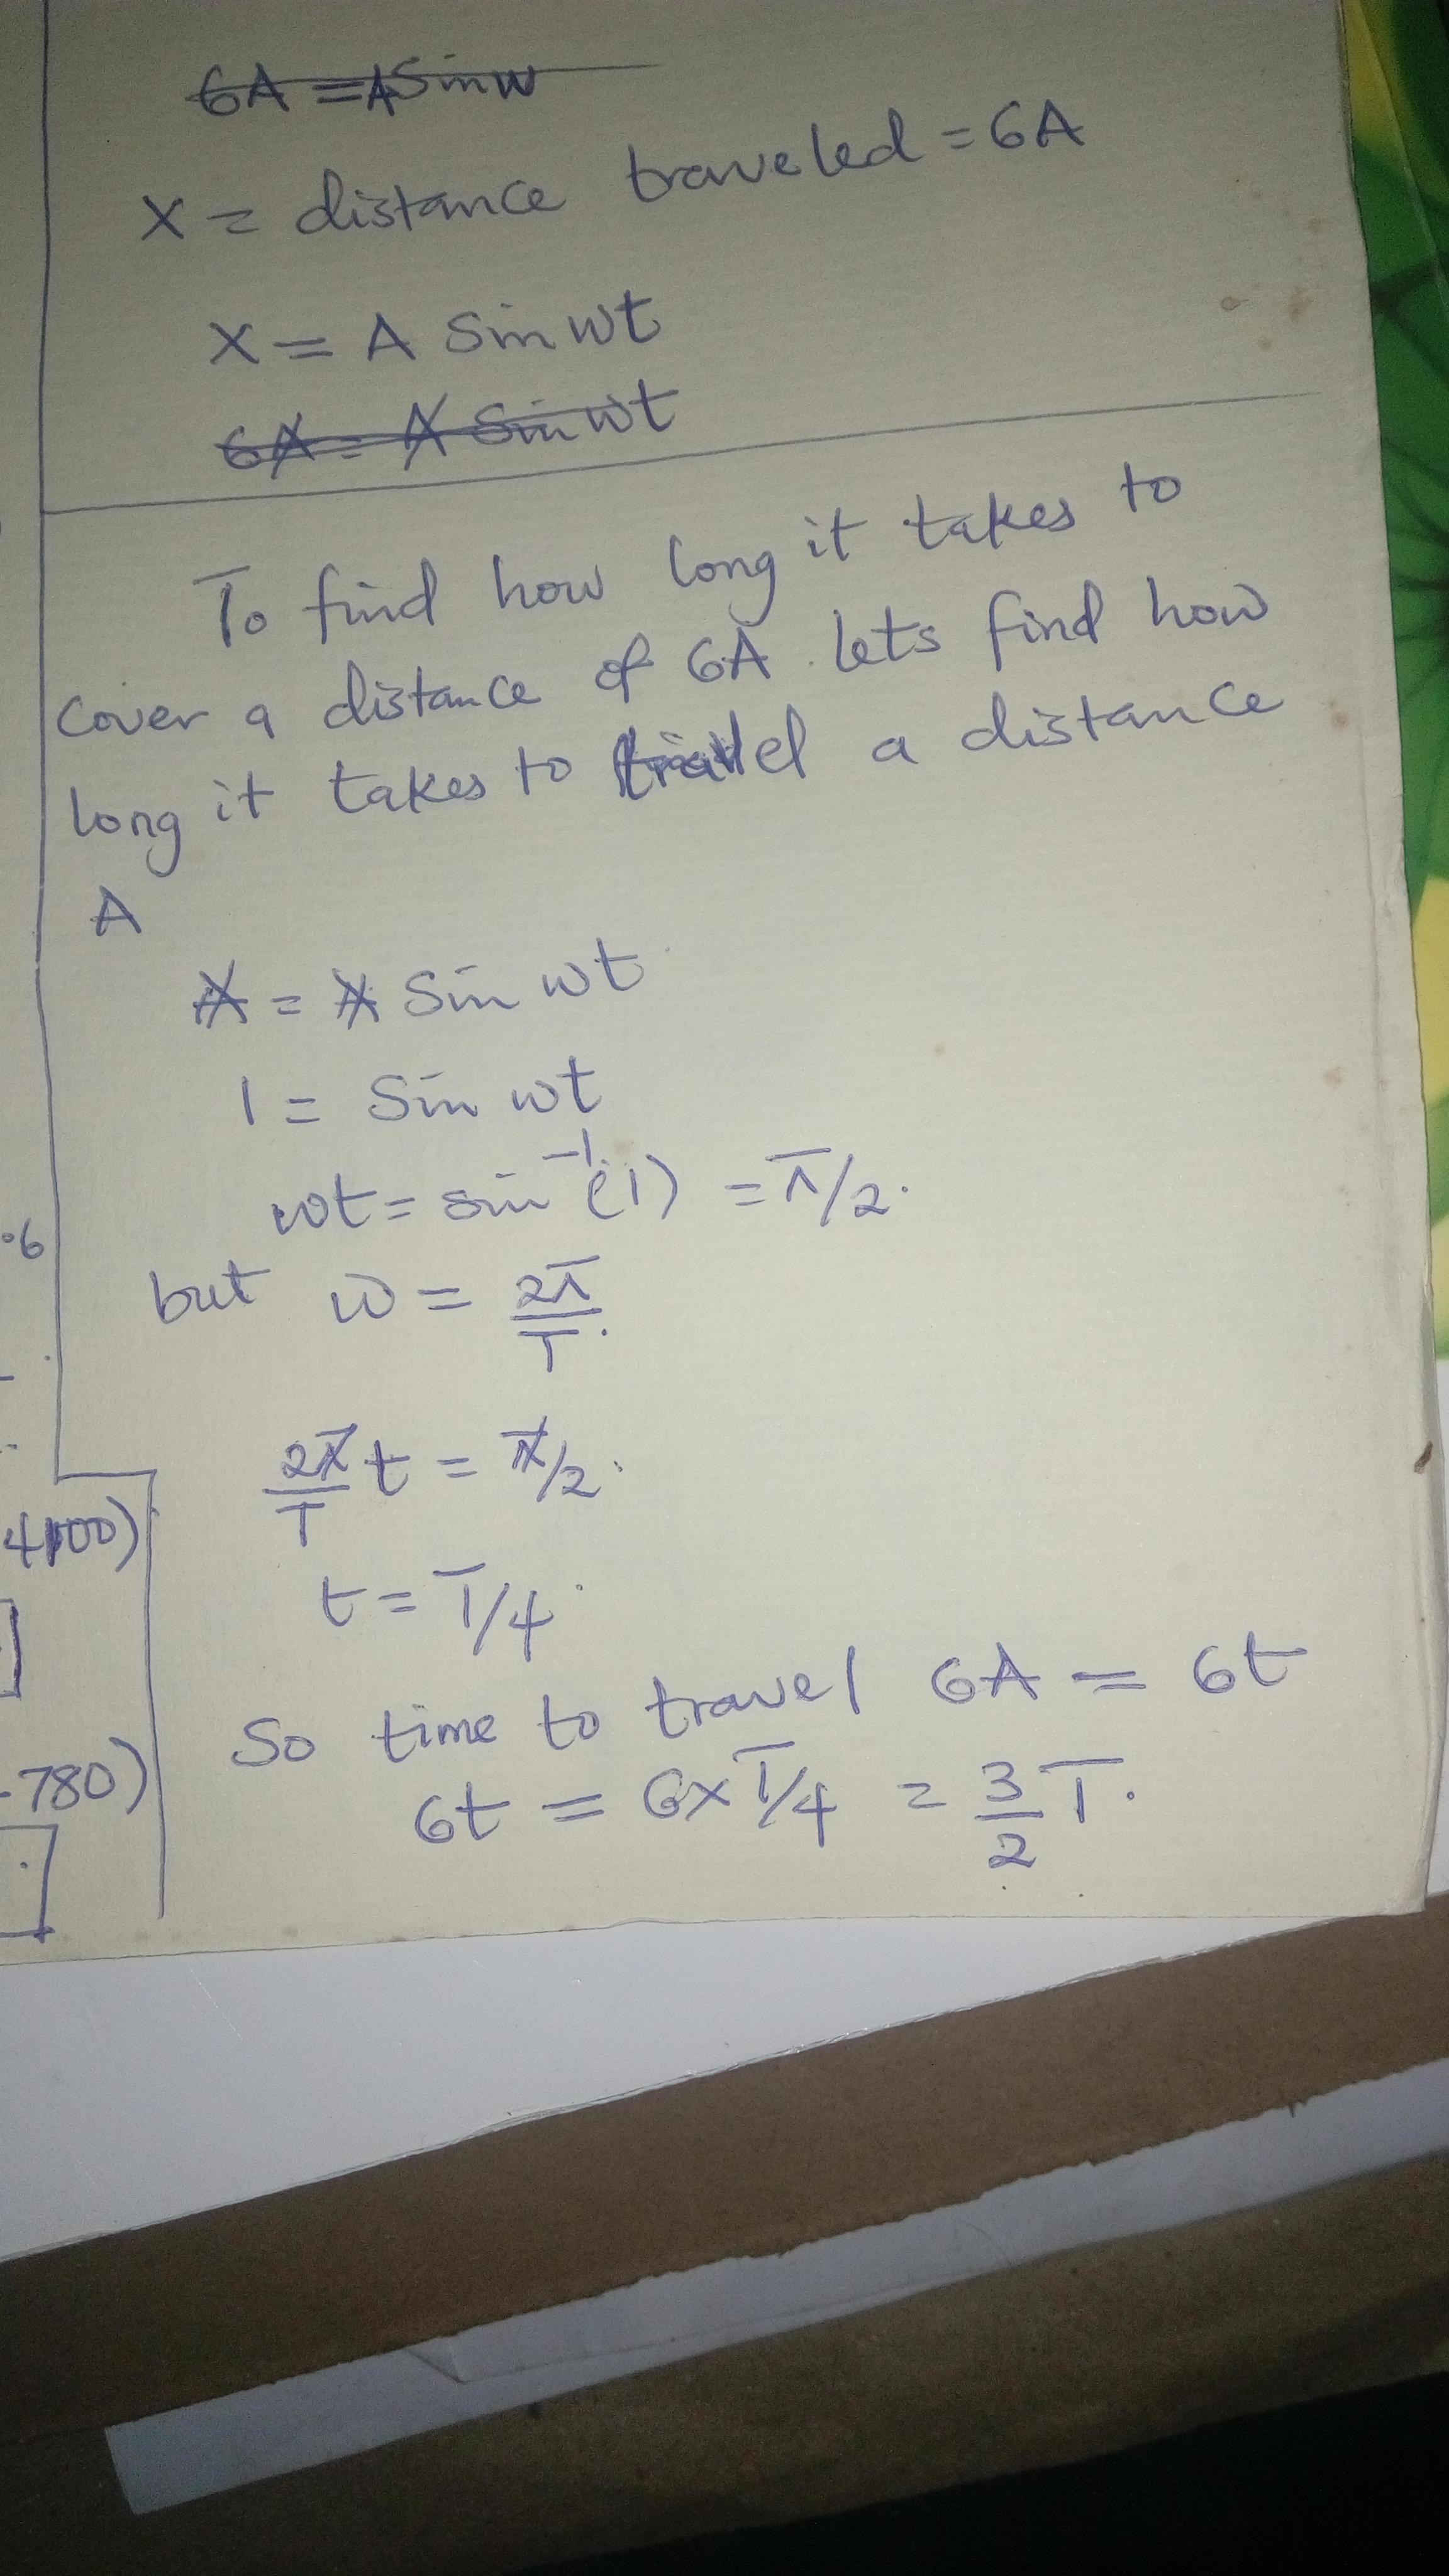 6A = A Sin w
x = distance traveled = 6A
x = A Sin wt
6A = A Sin wt
To find how long it takes to
cover a distance of 6A. lets find how
long it takes to travel a distance
A
A = A Sin wt
1 = Sin wt
wt = sin⁻¹(1) = π/2.
but w = 2π/T.
2π/T t = π/2.
t = T/4.
So time to travel 6A = 6t
6t = 6 x T/4 = 3/2 T.
.6
4100)
]
-780)